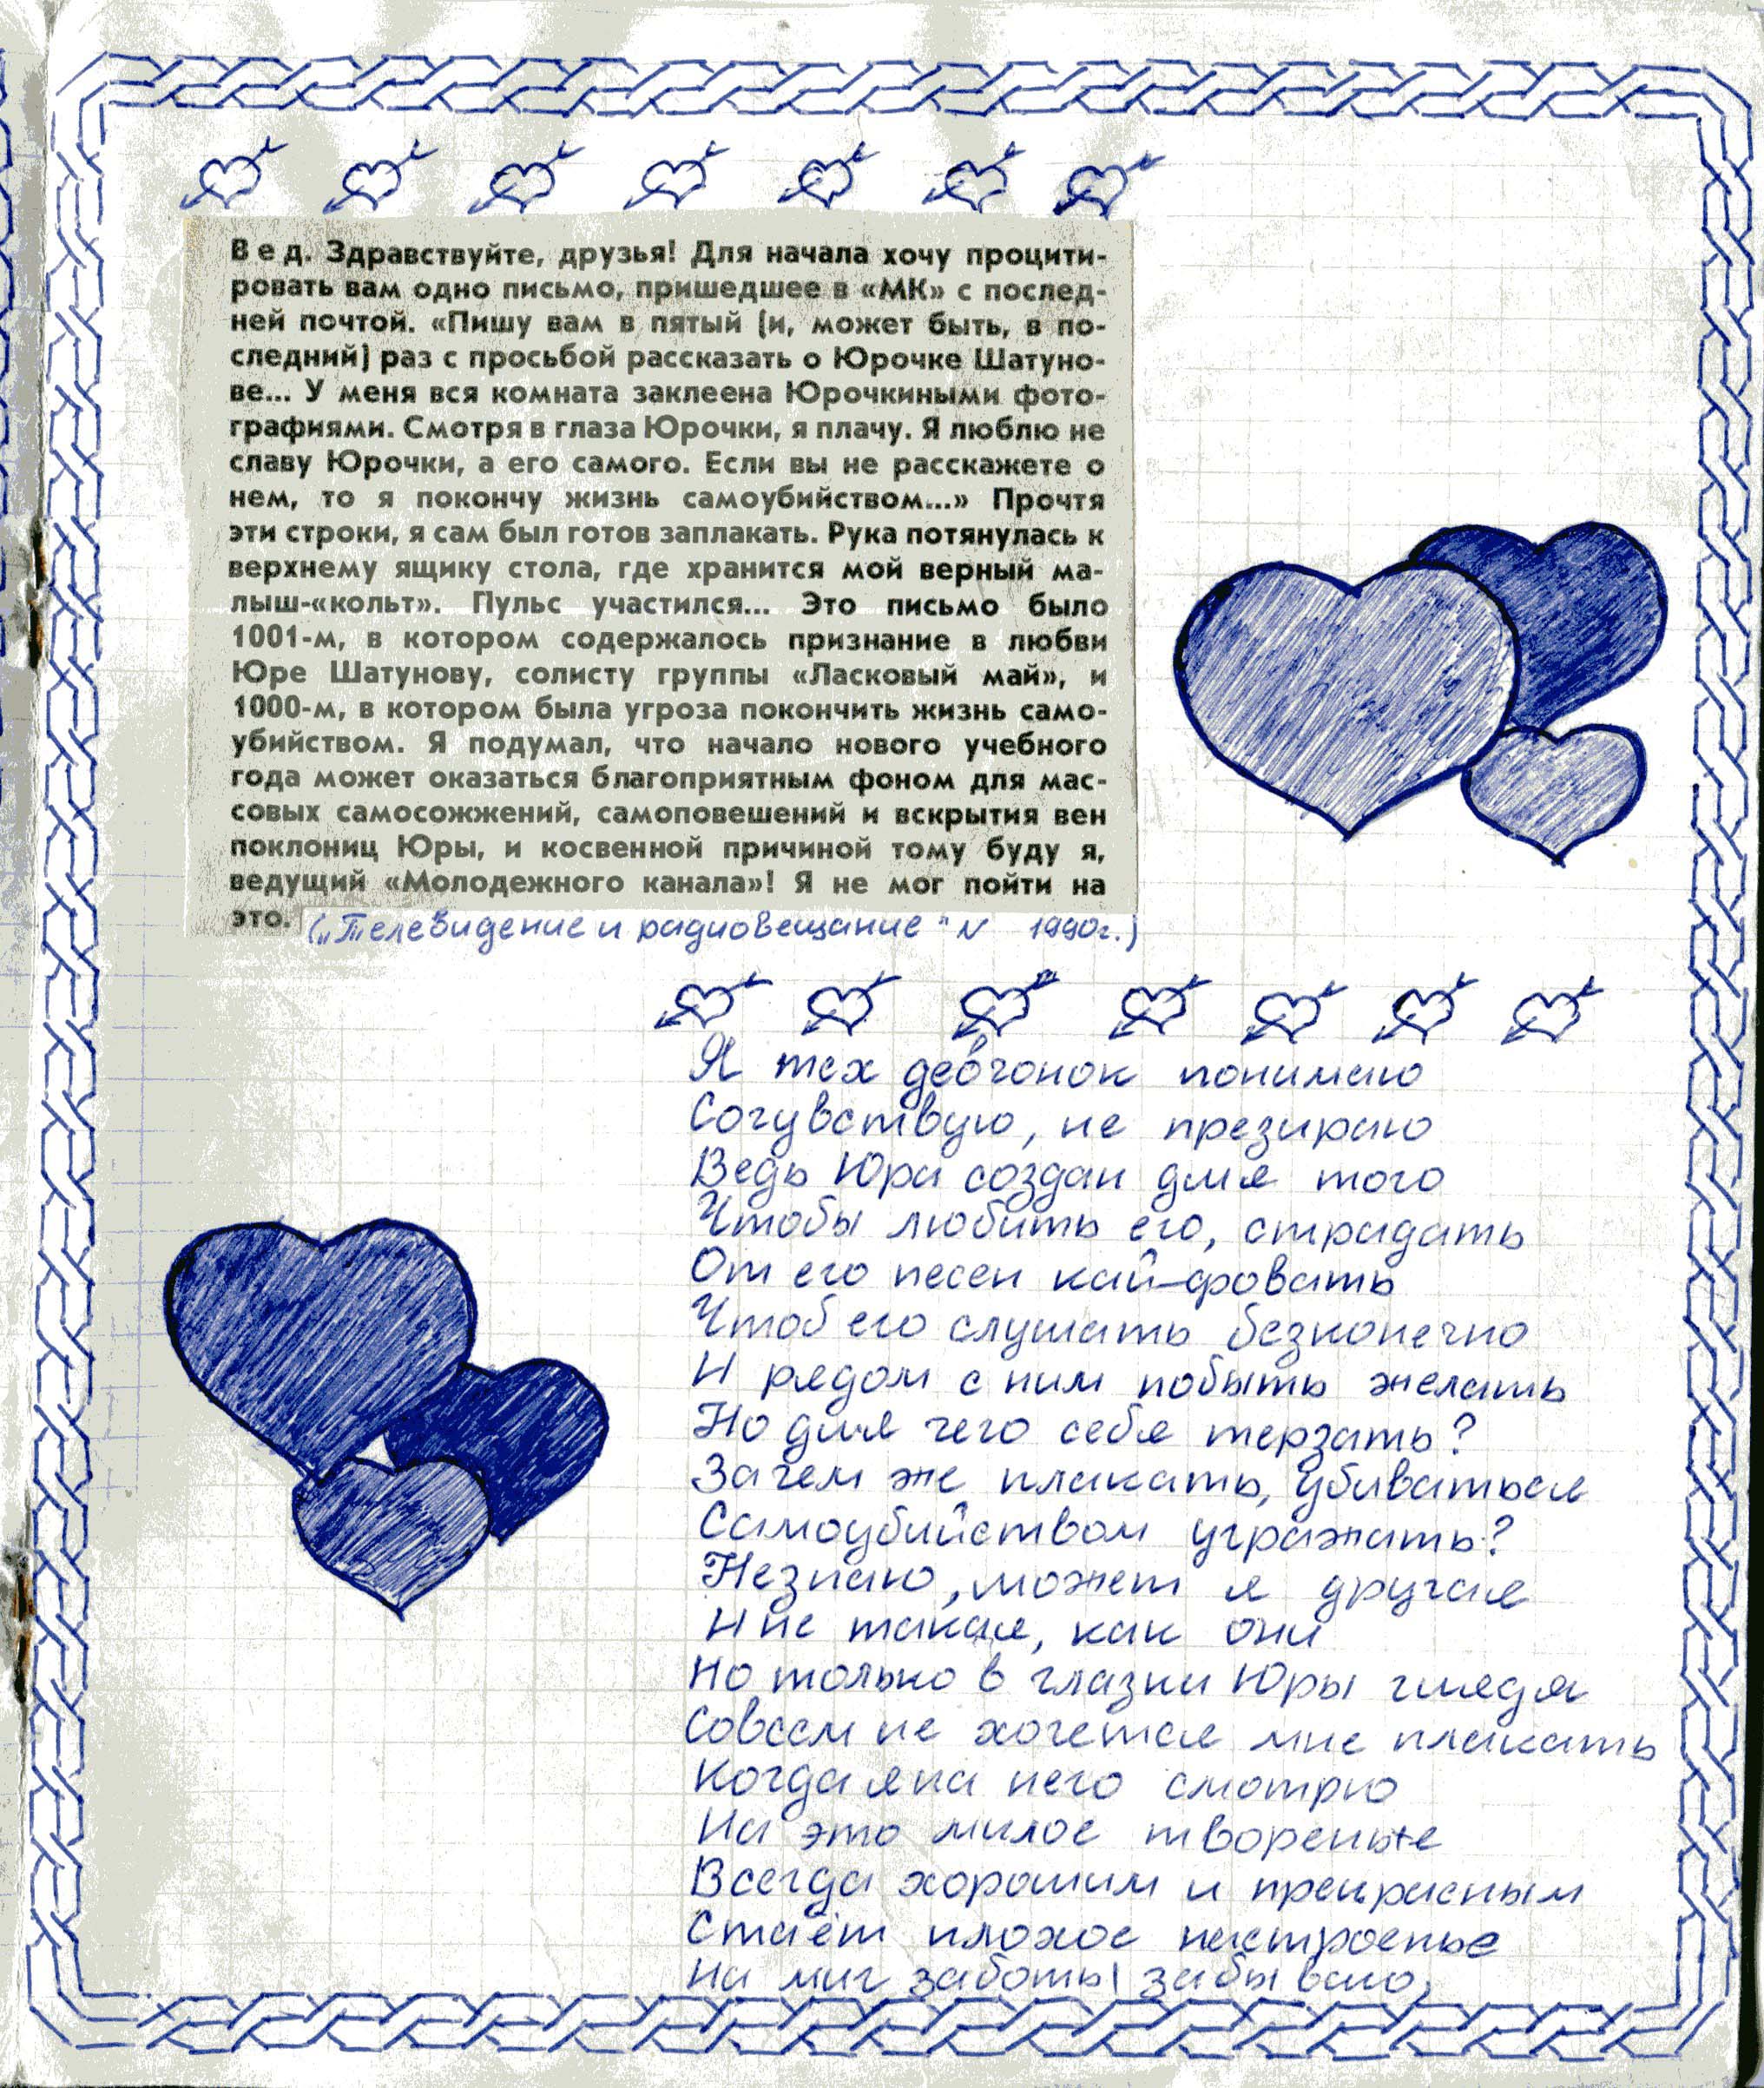 Вед. Здравствуйте, друзья! Для начала хочу процити-
ровать вам одно письмо, пришедшее в «МК» с послед-
ней почтой. «Пишу вам в пятый (и, может быть, в по-
следний) раз с просьбой рассказать о Юрочке Шатуно-
ве... У меня вся комната заклеена Юрочкиными фото-
графиями. Смотря в глаза Юрочки, я плачу. Я люблю не
славу Юрочки, а его самого. Если вы не расскажете о
нем, то я покончу жизнь самоубийством...» Прочтя
эти строки, я сам был готов заплакать. Рука потянулась к
верхнему ящику стола, где хранится мой верный ма-
лыш-«кольт». Пульс участился... Это письмо было
1001-м, в котором содержалось признание в любви
Юре Шатунову, солисту группы «Ласковый май», и
1000-м, в котором была угроза покончить жизнь само-
убийством. Я подумал, что начало нового учебного
года может оказаться благоприятным фоном для мас-
совых самосожжений, самоповешений и вскрытия вен
поклониц Юры, и косвенной причиной тому буду я,
ведущий «Молодежного канала»! Я не мог пойти на
это. („Телевидение и радиовещание" N 1990г.)
Я тех девчонок понимаю
Сочувствую, не презираю
Ведь Юра создан для того
Чтобы любить его, страдать
От его песен кайфовать
Чтоб его слушать безконечно
И рядом с ним побыть желать
Но для чего себя терзать?
Зачем же плакать, убиваться
Самоубийством угражать?
Незнаю, может я другая
И не такая, как они
Но только в глазки Юры глядя
Совсем не хочется мне плакать
Когда я на него смотрю
На это милое творенье
Всегда хорошим и прекрасным
Стаёт плохое настроенье
На миг заботы забываю,